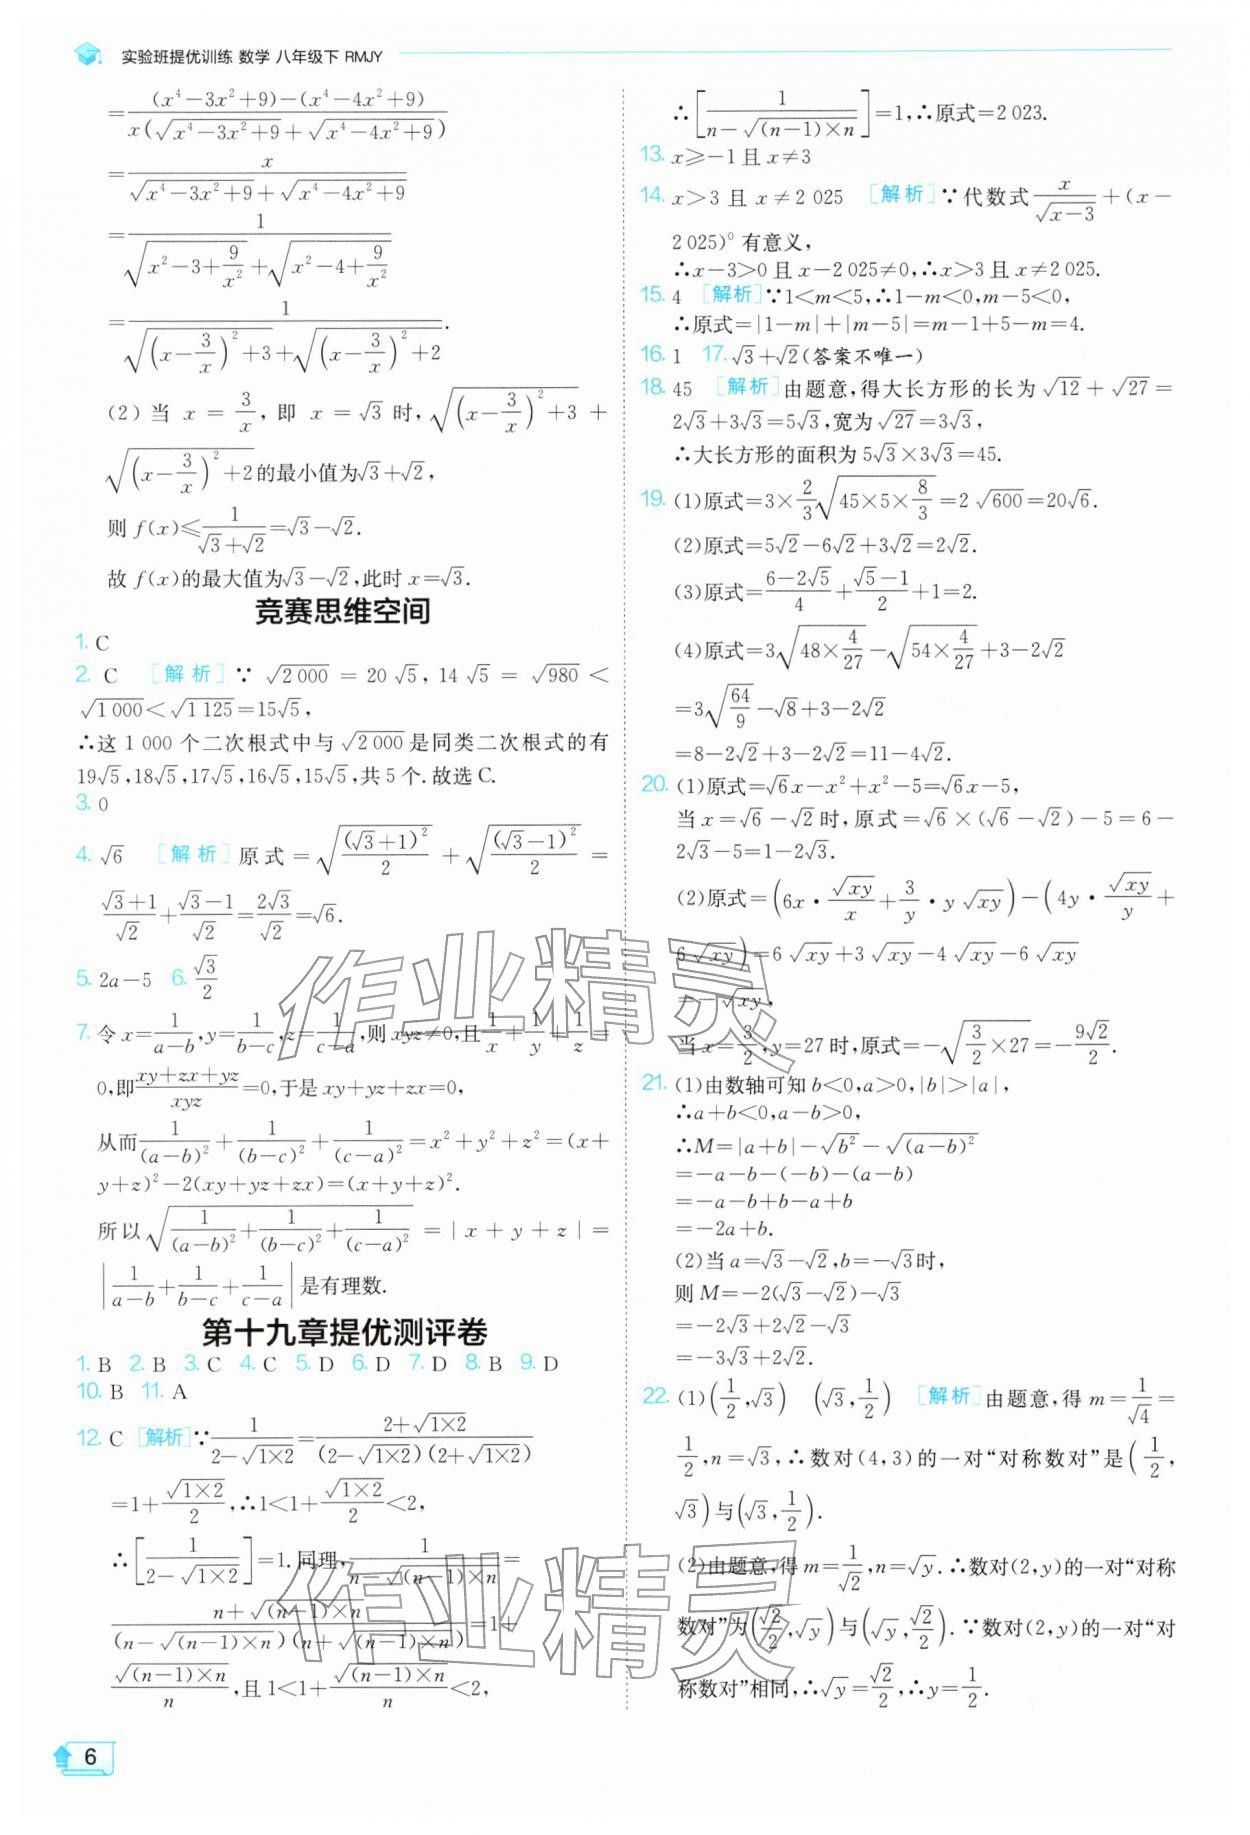 实验班提优训练 数学 八年级下 RMJY
=\frac{(x^4-3x^2+9)-(x^4-4x^2+9)}{x(\sqrt{x^4-3x^2+9}+\sqrt{x^4-4x^2+9})}
=\frac{x}{\sqrt{x^4-3x^2+9}+\sqrt{x^4-4x^2+9}}
=\frac{1}{\sqrt{x^2-3+\frac{9}{x^2}}+\sqrt{x^2-4+\frac{9}{x^2}}}
=\frac{1}{\sqrt{(x-\frac{3}{x})^2+3}+\sqrt{(x-\frac{3}{x})^2+2}}.
(2)当 x=\frac{3}{x},即 x=√3 时,\sqrt{(x-\frac{3}{x})^2+3}+
\sqrt{(x-\frac{3}{x})^2+2}的最小值为√3+√2,
则 f(x)≤\frac{1}{√3+√2}=√3-√2.
故 f(x)的最大值为√3-√2,此时 x=√3.
竞赛思维空间
1. C
2. C [解析]∵√(2 000)=20√5,14√5=√980<
√(1 000)<√(1 125)=15√5,
∴这 1 000 个二次根式中与√(2 000)是同类二次根式的有
19√5,18√5,17√5,16√5,15√5,共 5 个.故选 C.
3. 0
4. √6 [解析]原式=\sqrt{\frac{(√3+1)^2}{2}}+\sqrt{\frac{(√3-1)^2}{2}}=
\frac{√3+1}{√2}+\frac{√3-1}{√2}=\frac{2√3}{√2}=√6.
5. 2a-5 6. \frac{√3}{2}
7. 令 x=\frac{1}{a-b},y=\frac{1}{b-c},z=\frac{1}{c-a},则 xyz≠0,且\frac{1}{x}+\frac{1}{y}+\frac{1}{z}=
0,即\frac{xy+zx+yz}{xyz}=0,于是 xy+yz+zx=0,
从而\frac{1}{(a-b)^2}+\frac{1}{(b-c)^2}+\frac{1}{(c-a)^2}=x^2+y^2+z^2=(x+
y+z)^2-2(xy+yz+zx)=(x+y+z)^2.
所以\sqrt{\frac{1}{(a-b)^2}+\frac{1}{(b-c)^2}+\frac{1}{(c-a)^2}}=|x+y+z|=
|\frac{1}{a-b}+\frac{1}{b-c}+\frac{1}{c-a}|是有理数.
第十九章提优测评卷
1. B 2. B 3. C 4. C 5. D 6. D 7. D 8. B 9. D
10. B 11. A
12. C [解析]∵\frac{1}{2-\sqrt{1×2}}=\frac{2+\sqrt{1×2}}{(2-\sqrt{1×2})(2+\sqrt{1×2})}
=1+\frac{\sqrt{1×2}}{2},∴1<1+\frac{\sqrt{1×2}}{2}<2,
∴[\frac{1}{2-\sqrt{1×2}}]=1.同理,\frac{1}{n-\sqrt{(n-1)×n}}=
\frac{n+\sqrt{(n-1)×n}}{(n-\sqrt{(n-1)×n})(n+\sqrt{(n-1)×n})}=1+
\frac{\sqrt{(n-1)×n}}{n},且 1<1+\frac{\sqrt{(n-1)×n}}{n}<2,
∴[\frac{1}{n-\sqrt{(n-1)×n}}]=1,∴原式=2 023.
13. x≥-1 且 x≠3
14. x>3 且 x≠2 025 [解析]∵代数式\frac{x}{\sqrt{x-3}}+(x-
2 025)^0 有意义,
∴x-3>0 且 x-2 025≠0,∴x>3 且 x≠2 025.
15. 4 [解析]∵1<m<5,∴1-m<0,m-5<0,
∴原式=|1-m|+|m-5|=m-1+5-m=4.
16. 1 17. √3+√2(答案不唯一)
18. 45 [解析]由题意,得大长方形的长为√12+√27=
2√3+3√3=5√3,宽为√27=3√3,
∴大长方形的面积为 5√3×3√3=45.
19. (1)原式=3×\frac{2}{3}\sqrt{45×5×\frac{8}{3}}=2√600=20√6.
(2)原式=5√2-6√2+3√2=2√2.
(3)原式=\frac{6-2√5}{4}+\frac{√5-1}{2}+1=2.
(4)原式=3\sqrt{48×\frac{4}{27}}-\sqrt{54×\frac{4}{27}}+3-2√2
=3\sqrt{\frac{64}{9}}-√8+3-2√2
=8-2√2+3-2√2=11-4√2.
20. (1)原式=√6x-x^2+x^2-5=√6x-5,
当 x=√6-√2时,原式=√6×(√6-√2)-5=6-
2√3-5=1-2√3.
(2)原式=(6x·\frac{\sqrt{xy}}{x}+\frac{3}{y}·y\sqrt{xy})-(4y·\frac{\sqrt{xy}}{y}+
6\sqrt{xy})=6\sqrt{xy}+3\sqrt{xy}-4\sqrt{xy}-6\sqrt{xy}
=-\sqrt{xy},
当 x=\frac{3}{2},y=27 时,原式=-\sqrt{\frac{3}{2}×27}=-\frac{9√2}{2}.
21. (1)由数轴可知 b<0,a>0,|b|>|a|,
∴a+b<0,a-b>0,
∴M=|a+b|-\sqrt{b^2}-\sqrt{(a-b)^2}
=-a-b-(-b)-(a-b)
=-a-b+b-a+b
=-2a+b.
(2)当 a=√3-√2,b=-√3时,
则 M=-2(√3-√2)-√3
=-2√3+2√2-√3
=-3√3+2√2.
22. (1)(\frac{1}{2},√3) (√3,\frac{1}{2}) [解析]由题意,得 m=\frac{1}{√4}=
\frac{1}{2},n=√3,∴数对(4,3)的一对“对称数对”是(\frac{1}{2},
√3)与(√3,\frac{1}{2}).
(2)由题意,得 m=\frac{1}{√2},n=√y.∴数对(2,y)的一对“对称
数对”为(\frac{√2}{2},√y)与(√y,\frac{√2}{2}).∵数对(2,y)的一对“对
称数对”相同,∴√y=\frac{√2}{2},∴y=\frac{1}{2}.
作业精灵
作业精灵
6